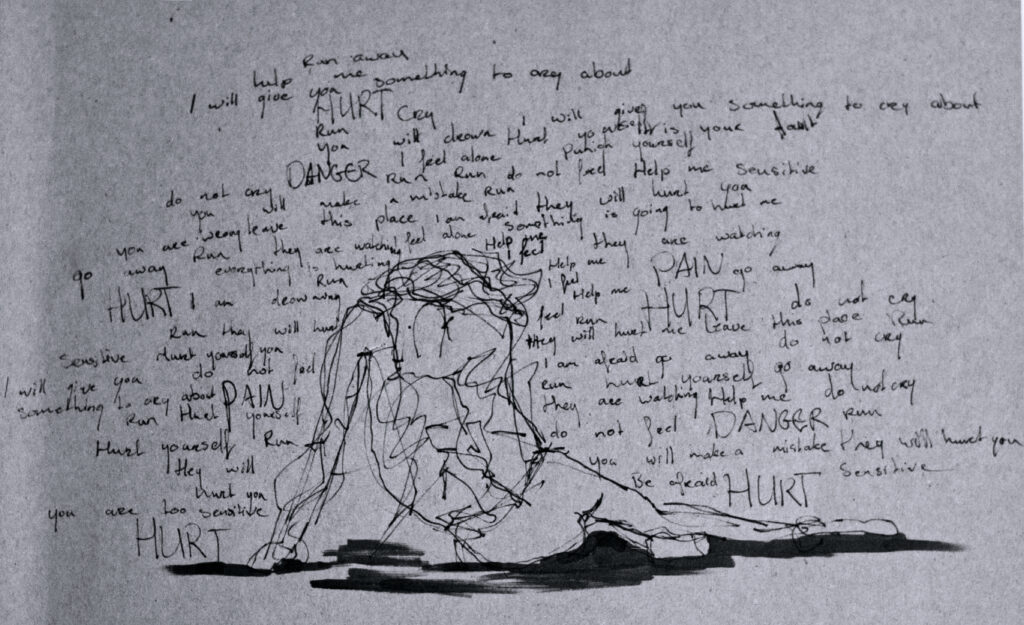 Run away
help me
I will give you something to cry about
HURT cry
Run I will give you something to cry about
you will drown Hurt yourself It is your fault
DANGER I feel alone Punish yourself
do not cry Run Run do not feel Help me sensitive
you will make a mistake Run
you are wrong leave this place I am afraid they will hurt you
go away Run they are watching feel alone something is going to hurt me
everything is hurting Help me they are watching
Run I feel
HURT I am drowning
Help me PAIN go away
I feel Help me HURT do not cry
feel Run
Run they will hurt
they will hurt me leave this place Run
Sensitive Hurt yourself you
I am afraid go away do not cry
I will give you do not feel
Run hurt yourself go away
something to cry about PAIN
they are watching Help me do not cry
Run Hurt yourself
do not feel DANGER Run
Hurt yourself Run
you will make a mistake they will hurt you
they will
Be afraid HURT Sensitive
hurt you
you are too sensitive
HURT